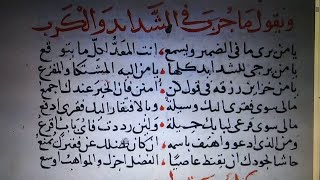 ونقول ما جرب فى الشدايد والكرب
يا من يرى ما فى الضمير ويسمع انت المعد لكل ما يتوقع
يا من يرجى للشدايد كلها يا من اليه المشتكا والمفزع
يا من خزاين رزقه فى قول كن امنن فان الخير عندك اجمع
مالى سوى فقرى اليك وسيلة وبالافتقار اليك فقرى ادفع
مالى سوى قرعى لبابك حيلة ولئن رددت فاى باب اقرع
ومن الذى ادعو واهتف باسمه ان كان فضلك عن فقيرك يمنع
حاشا لجودك ان يقنط عاصيا الفضل اجزل والمواهب اوسع